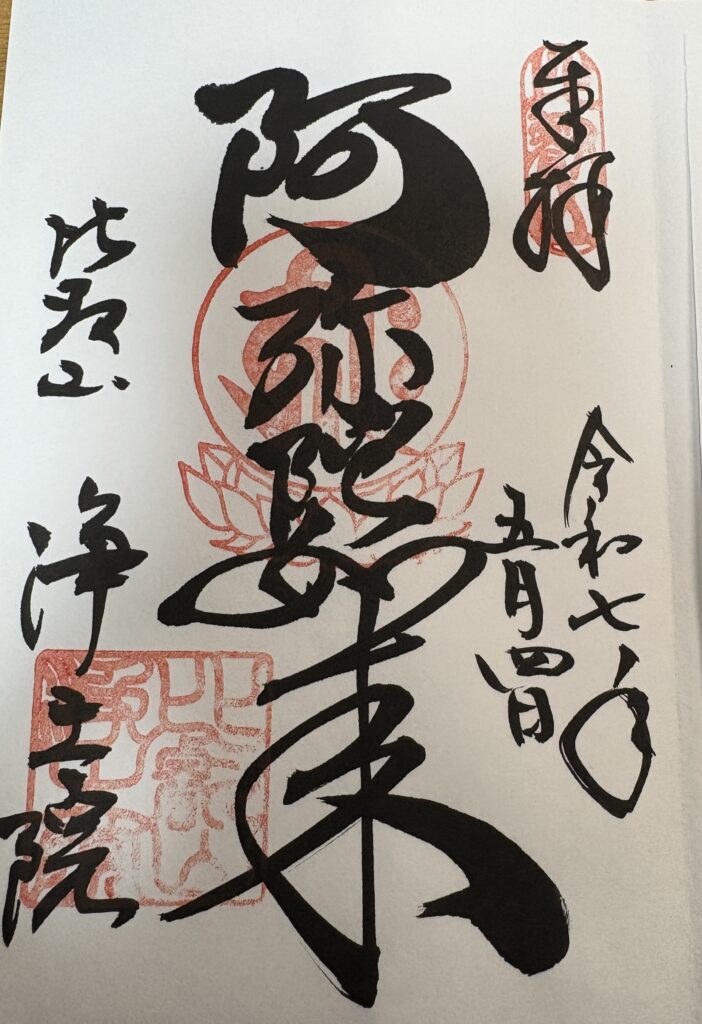 奉拝
令和七年
五月四日
阿弥陀如来
比叡山
浄土院